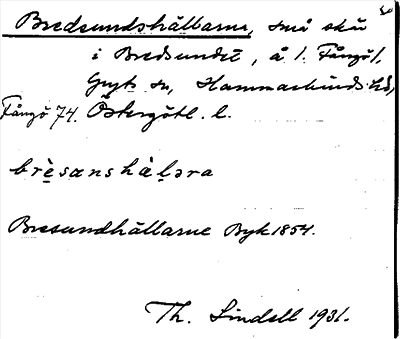 Bredsundshällarne, små skär
i Bredsundet, å l. Fångö l,
Gryts sn, Hammarkinds hd,
Fångö 74. Östergötl. l.
brèsanshàḷəra
Bresundhällarne Byk 1854.
Th. Lindell 1931.